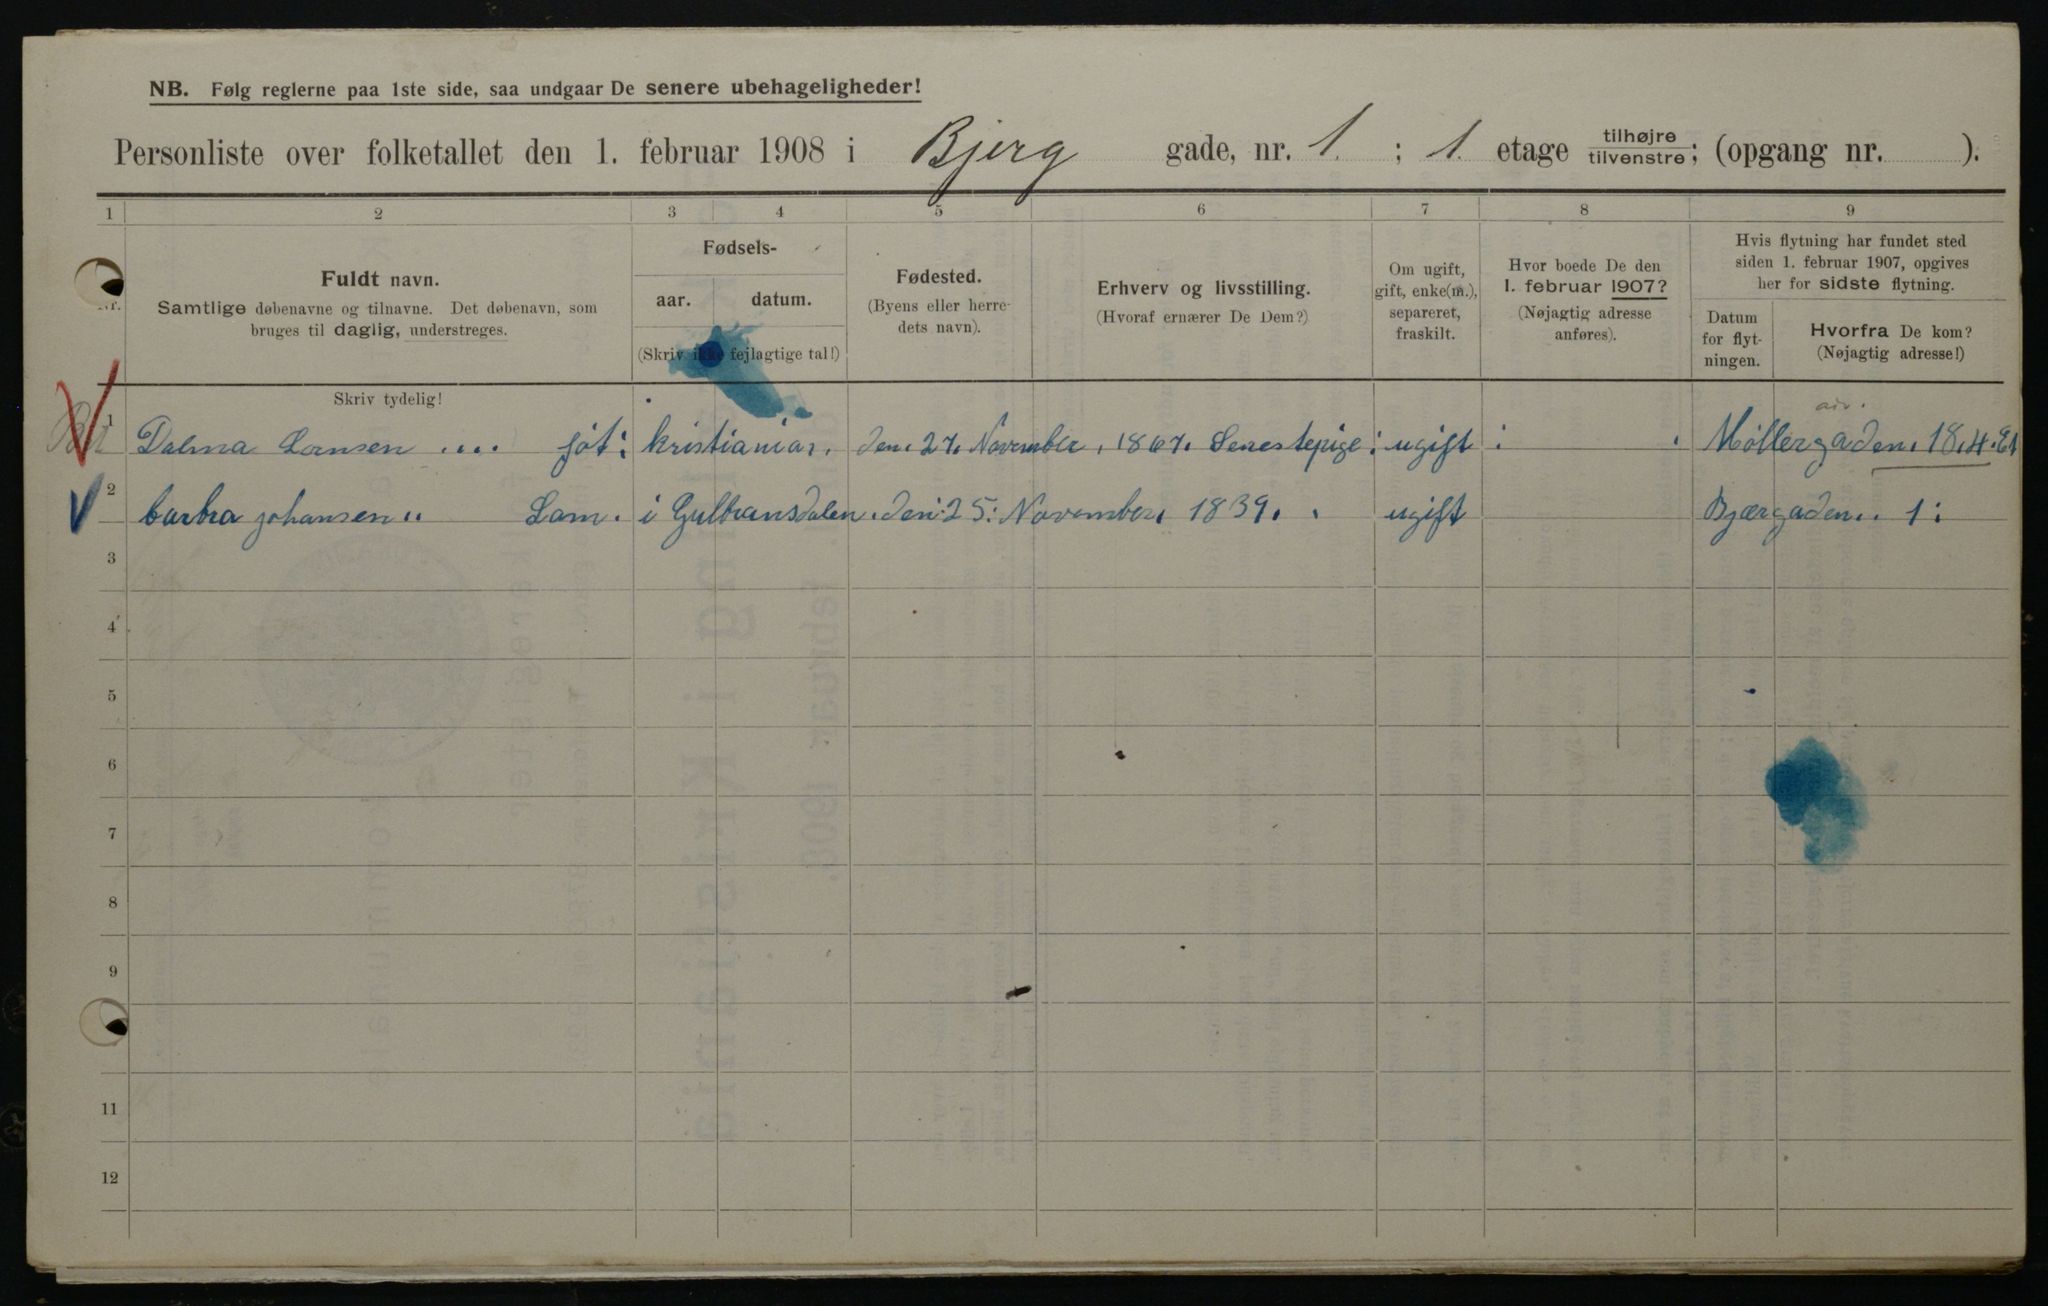 NB. Følg reglerne paa 1ste side, saa undgaar De senere ubehageligheder!
Personliste over folketallet den 1. februar 1908 i Bjerg gade, nr. 1. ; 1. etage tilhøjre/tilvenstre; (opgang nr. ).
1 2 3 4 5 6 7 8 9
Nr.
Fuldt navn.
Samtlige døbenavne og tilnavne. Det døbenavn, som
bruges til daglig, understreges.
Fødsels-
aar. datum.
(Skriv ikke fejlagtige tal!)
Fødested.
(Byens eller herre-
dets navn).
Erhverv og livsstilling.
(Hvoraf ernærer De Dem?)
Om ugift,
gift, enke(m.),
separeret,
fraskilt.
Hvor boede De den
1. februar 1907?
(Nøjagtig adresse
anføres).
Hvis flytning har fundet sted
siden 1. februar 1907, opgives
her for sidste flytning.
Datum
for flyt-
ningen.
Hvorfra De kom?
(Nøjagtig adresse!)
Skriv tydelig!
1 Dalma Larnsen .... føt: kristiania, den, 27, November, 1867, Senestepige: ugift : Møllergaden, 18,4. Et
2 barbra johansen .. Som. i Gulbransdalen. den: 25: November, 1839, . ugift Bjærgaden.. 1:
3
4
5
6
7
8
9
11
12